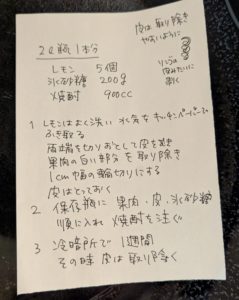 2ℓ瓶1本分
皮は取り除き
やすいように
りんごの
皮みたいに
むく
レモン 5個
氷砂糖 200g
焼酎 900cc
1 レモンはよく洗い水気をキッチンペーパーで
ふき取る
両端を切りおとして皮をむき
果肉の白い部分を取り除き
1cm巾の輪切りにする
皮はとっておく
2 保存瓶に果肉・皮・氷砂糖
順に入れ焼酎を注ぐ
3 冷暗所で1週間
その時皮は取り除く